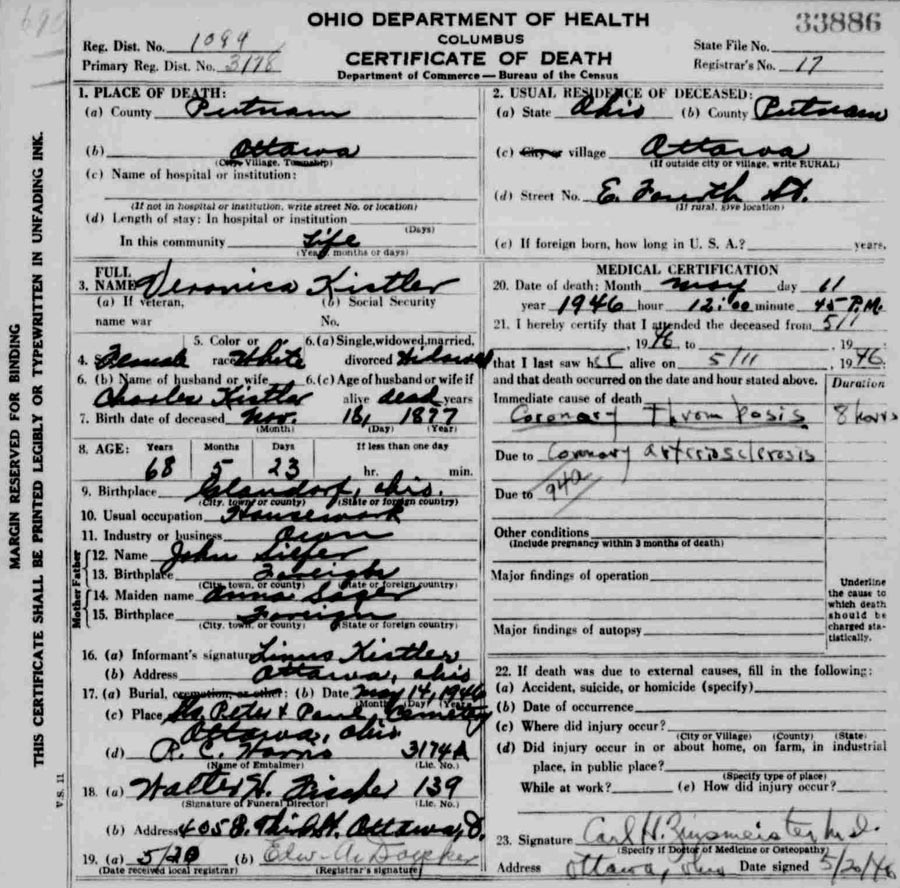 33886
OHIO DEPARTMENT OF HEALTH
COLUMBUS
CERTIFICATE OF DEATH
Department of Commerce — Bureau of the Census
Reg. Dist. No. 1099
Primary Reg. Dist. No. 3178
State File No.
Registrar's No. 17
MARGIN RESERVED FOR BINDING
THIS CERTIFICATE SHALL BE PRINTED LEGIBLY OR TYPEWRITTEN IN UNFADING INK.
V.S. 11
1. PLACE OF DEATH:
(a) County Putnam
(b) Ottawa
(City, Village, Township)
(c) Name of hospital or institution:
(If not in hospital or institution, write street No. or location)
(d) Length of stay: In hospital or institution
(Days)
In this community Life
(Years, months or days)
2. USUAL RESIDENCE OF DECEASED:
(a) State Ohio (b) County Putnam
(c) City or village Ottawa
(If outside city or village, write RURAL)
(d) Street No. E. Fourth St.
(If rural, give location)
(e) If foreign born, how long in U. S. A.? years.
3. FULL NAME Veronica Kistler
(a) If veteran, name war
(b) Social Security No.
4. Sex Female
5. Color or race White
6. (a) Single, widowed, married, divorced Widowed
6. (b) Name of husband or wife Charles Kistler
6. (c) Age of husband or wife if alive dead years
7. Birth date of deceased Nov. 18, 1877
(Month) (Day) (Year)
8. AGE: Years Months Days If less than one day
68 5 23 hr. min.
9. Birthplace Glandorf, Ohio.
(City, town, or county) (State or foreign country)
10. Usual occupation Housework
11. Industry or business Own
Father
12. Name John
13. Birthplace Foreign
(City, town, or county) (State or foreign country)
Mother
14. Maiden name Anna
15. Birthplace Foreign
(City, town, or county) (State or foreign country)
16. (a) Informant's signature Linus Kistler
(b) Address Ottawa, Ohio
17. (a) Burial, cremation, or other: (b) Date May 14, 1946
(Month) (Day) (Year)
(c) Place Sts. Peter & Paul Cemetery
Ottawa, Ohio
(d) R. C. Harris 3174A
(Name of Embalmer) (Lic. No.)
18. (a) Walter H. Fischer 139
(Signature of Funeral Director) (Lic. No.)
(b) Address 405 Ottawa, O.
19. (a) 5/20 (b) Edw. A.
(Date received local registrar) (Registrar's signature)
MEDICAL CERTIFICATION
20. Date of death: Month May day 11
year 1946 hour 12:00 minute 45 P.M.
21. I hereby certify that I attended the deceased from 5/11
, 1946 to , 19
that I last saw her alive on 5/11, 1946.
and that death occurred on the date and hour stated above.
Duration
Immediate cause of death
Coronary Thrombosis 8 hours
Due to Coronary arteriosclerosis
Due to 94a
Other conditions
(Include pregnancy within 3 months of death)
Major findings of operation
Major findings of autopsy
Underline the cause to which death should be charged statistically.
22. If death was due to external causes, fill in the following:
(a) Accident, suicide, or homicide (specify)
(b) Date of occurrence
(c) Where did injury occur?
(City or Village) (County) (State)
(d) Did injury occur in or about home, on farm, in industrial
place, in public place?
(Specify type of place)
While at work? (e) How did injury occur?
23. Signature Carl H. Zinsmeister M.D.
(Specify if Doctor of Medicine or Osteopathy)
Address Ottawa, Ohio Date signed 5/20/46